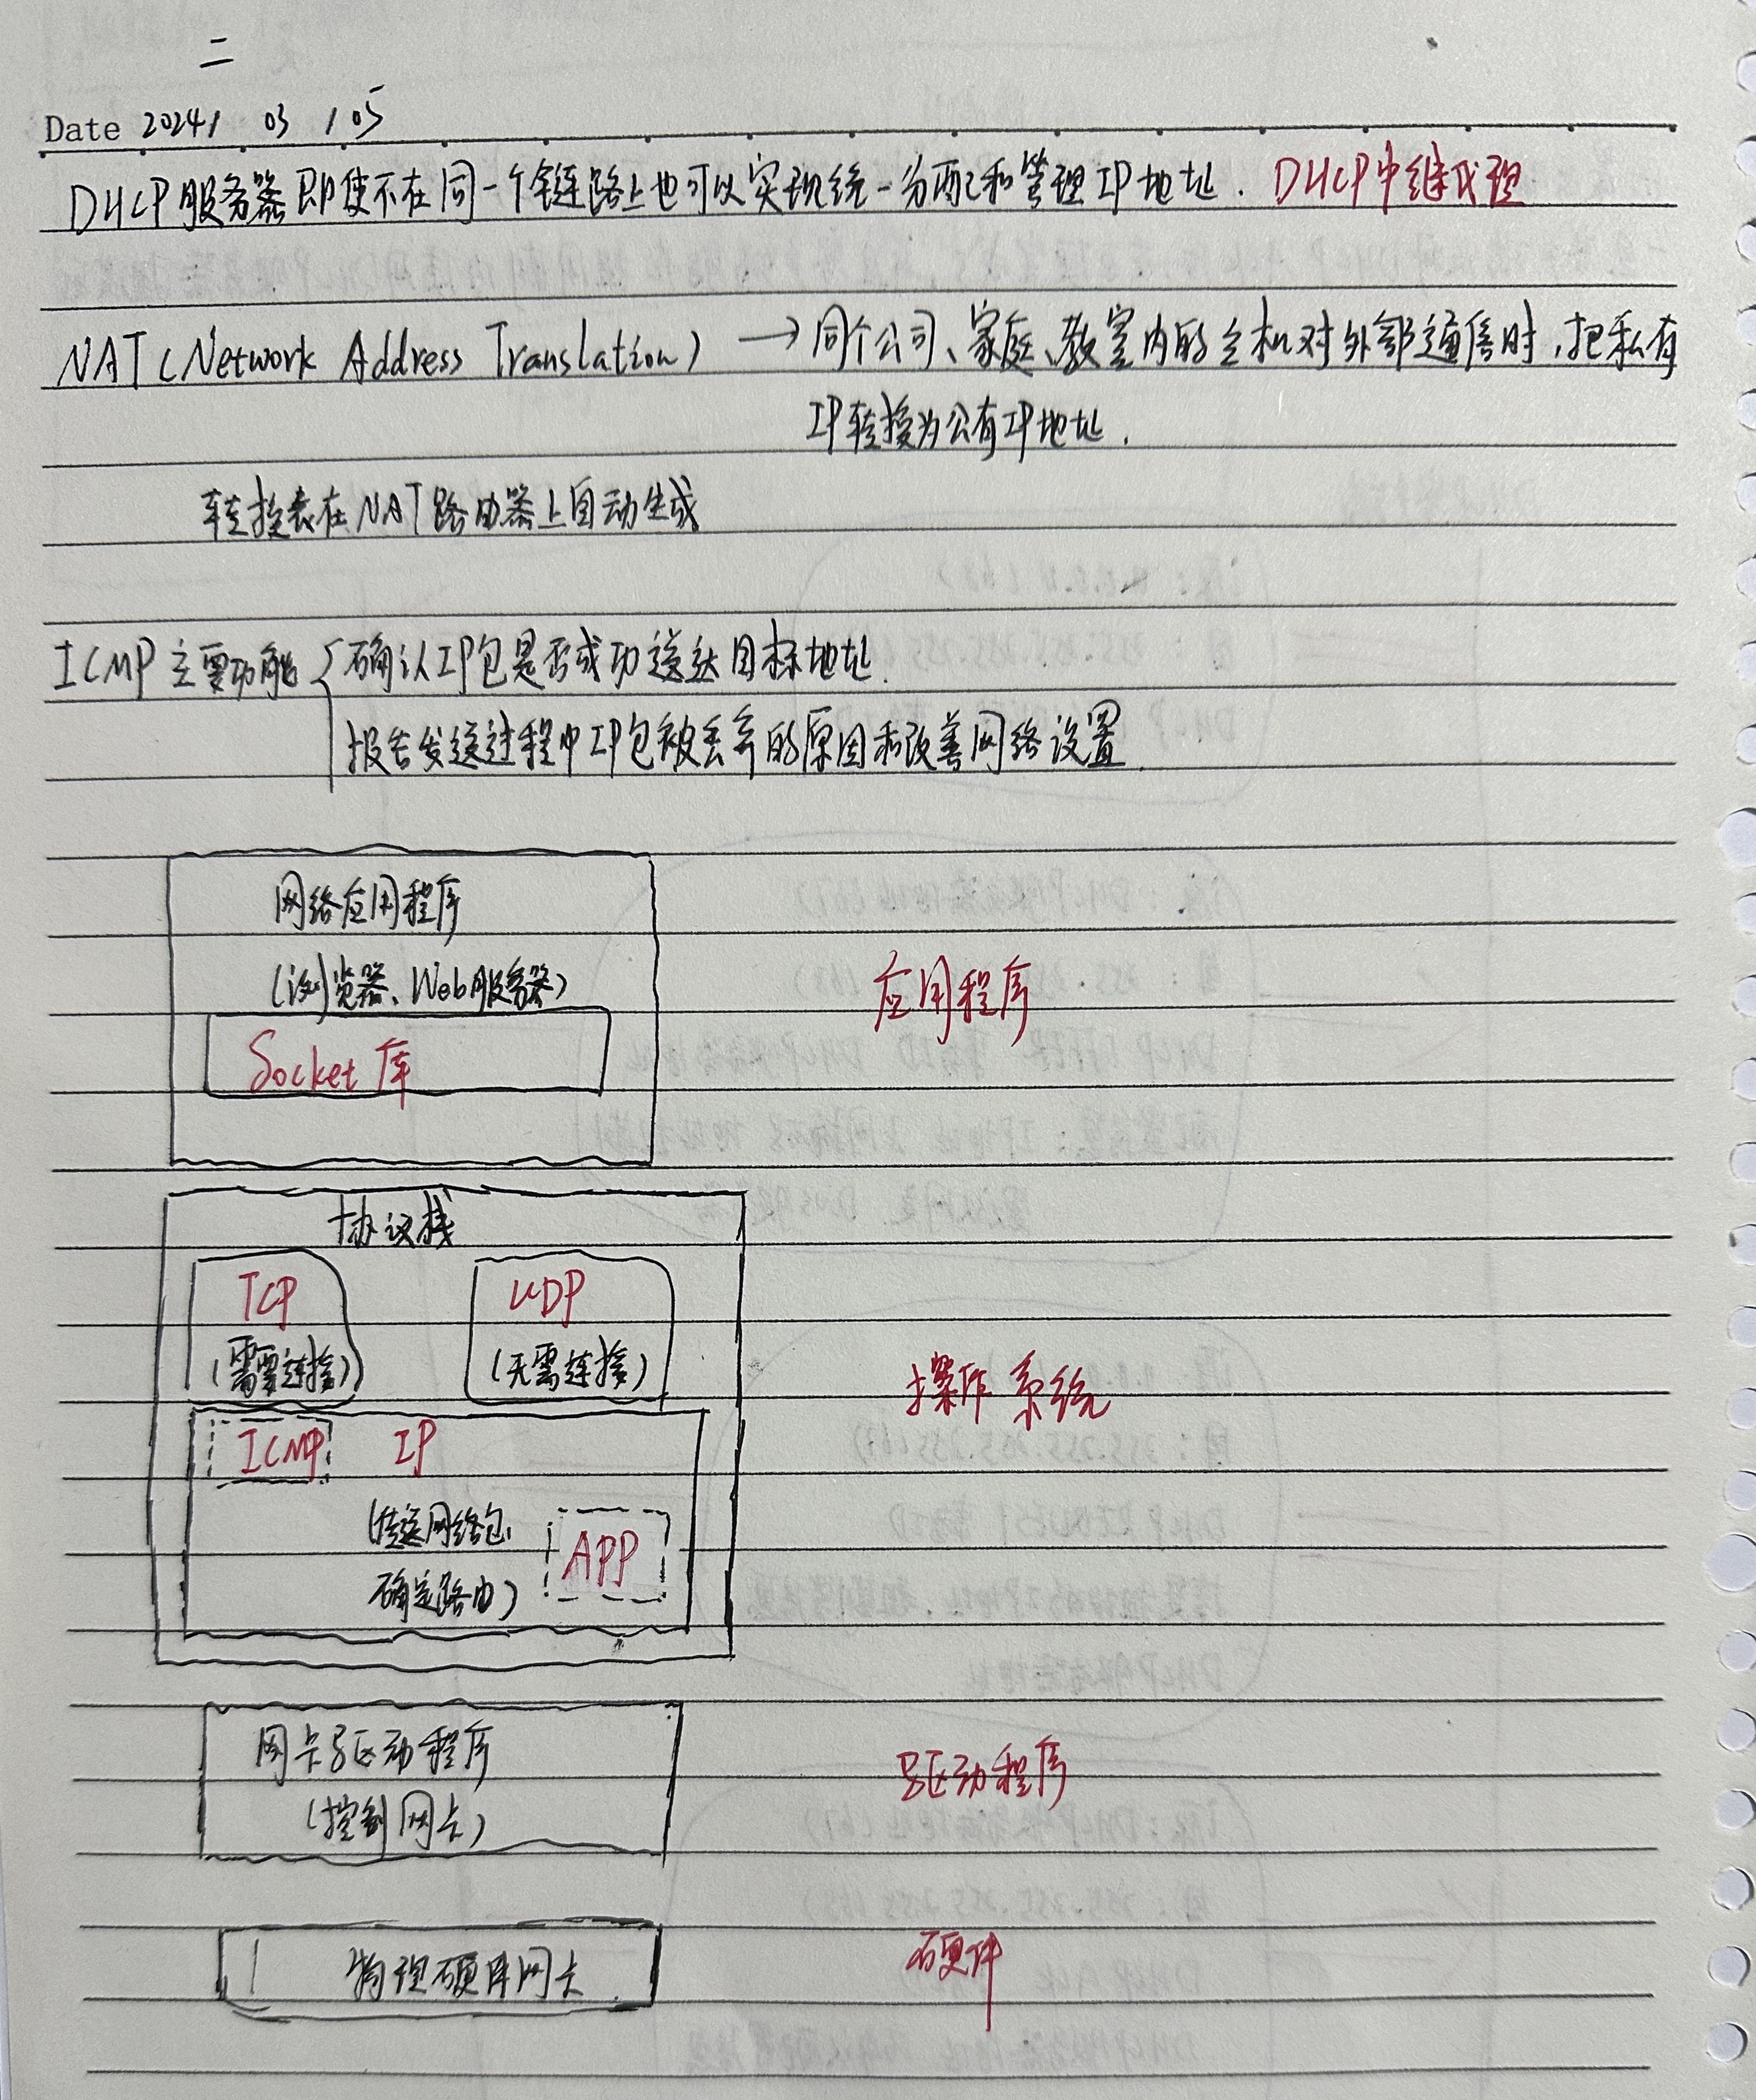 二
Date 2024 / 03 / 05
DHCP服务器即使不在同一个链路上也可以实现统一分配和管理IP地址. DHCP中继代理
NAT (Network Address Translation) → 同个公司、家庭、教室内的主机对外部通信时,把私有
IP转换为公有IP地址.
转换表在NAT路由器上自动生成
ICMP 主要功能 { 确认IP包是否成功送达目标地址.
报告发送过程中IP包被丢弃的原因和改善网络设置.
网络应用程序
(浏览器、Web服务器)
应用程序
Socket 库
协议栈
TCP UDP
(需要连接) (无需连接)
操作系统
ICMP IP
(传送网络包.
APP
确定路由)
网卡驱动程序
驱动程序
(控制网卡)
物理硬件网卡
硬件